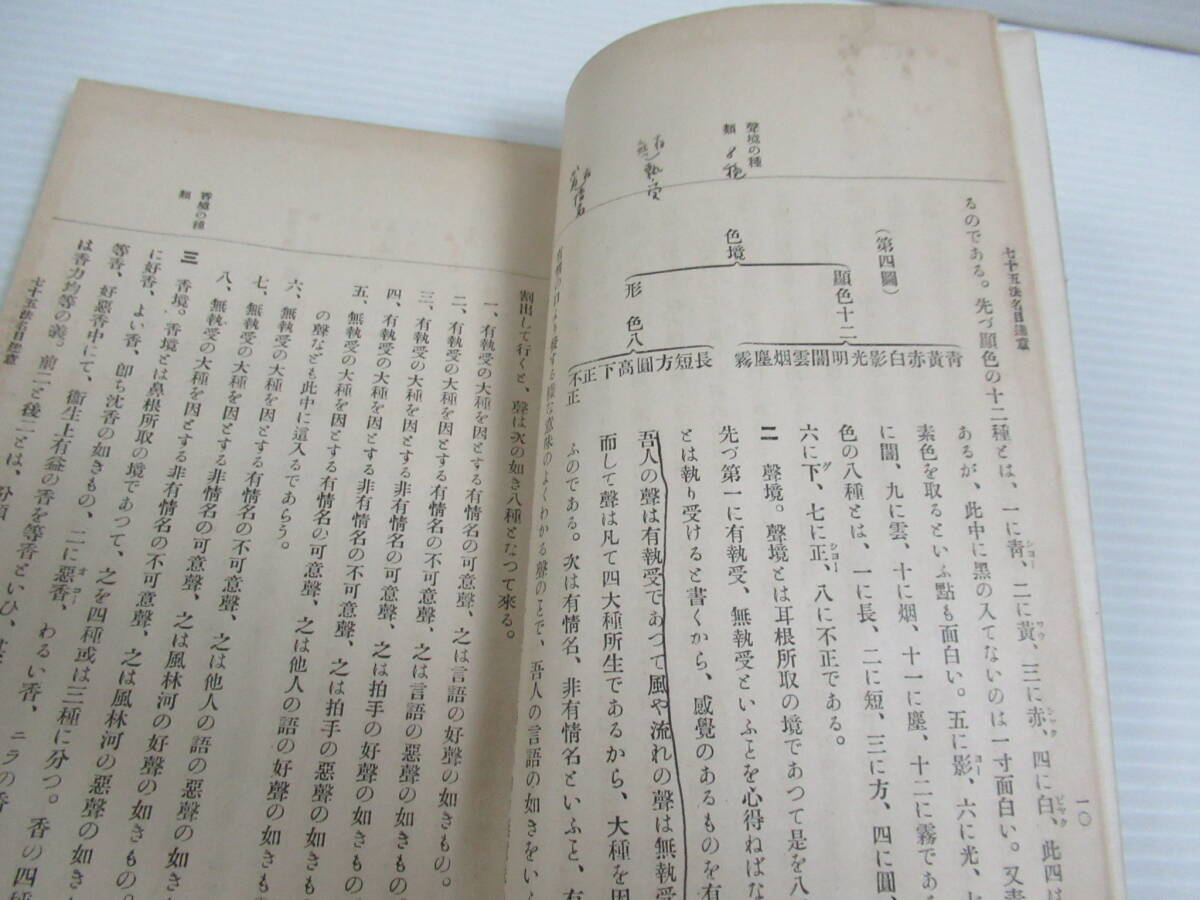 七十五法名目適意
一〇
るのである。先づ顯色の十二種とは、一に靑、二に黃、三に赤、四に白、此四は
あるが、此中に黑の入てないのは一寸面白い。又靑
素色を取るといふ點も面白い。五に影、六に光、七
に闇、九に雲、十に烟、十一に塵、十二に霧であ
色の八種とは、一に長、二に短、三に方、四に圓、
六に下、七に正、八に不正である。
(第四圖)
色境
顯色十二
靑黃赤白影光明闇雲烟塵霧
形色八
長短方圓高下正不正
聲境の種類
8種
執受
二 聲境。聲境とは耳根所取の境であつて是を八
先づ第一に有執受、無執受といふことを心得ねばな
とは執り受けると書くから、感覺のあるものを有
吾人の聲は有執受であつて風や流れの聲は無執受
而して聲は凡て四大種所生であるから、大種を因
ふのである。次は有情名、非有情名といふと、有
のよくわかる聲のことで、吾人の言語の如きをいふ
割出して行くと、聲は次の如き八種となつて來る。
一、有執受の大種を因とする有情名の可意聲、之は言語の好聲の如きもの。
二、有執受の大種を因とする有情名の不可意聲、之は言語の惡聲の如きもの
三、有執受の大種を因とする非有情名の可意聲、之は拍手の好聲の如きもの
四、有執受の大種を因とする非有情名の不可意聲、之は拍手の惡聲の如きも
五、無執受の大種を因とする有情名の可意聲、之は他人の語の好聲の如きも
の聲なども此中に這入るであらう。
六、無執受の大種を因とする有情名の不可意聲、之は他人の語の惡聲の如き
七、無執受の大種を因とする非情名の可意聲、之は風林河の好聲の如きもの
八、無執受の大種を因とする非有情名の不可意聲、之は風林河の惡聲の如き
香境の種類
三 香境。香境とは鼻根所取の境であつて、之を四種或は三種に分つ。香の四種
に好香、よい香、卽ち沈香の如きもの、二に惡香、わるい香、ニラの香
等香、好惡香中にて、衞生上有益の香を等香といひ、其
は香力均等の義。前二と後二とは、分類
七十五法名目適意